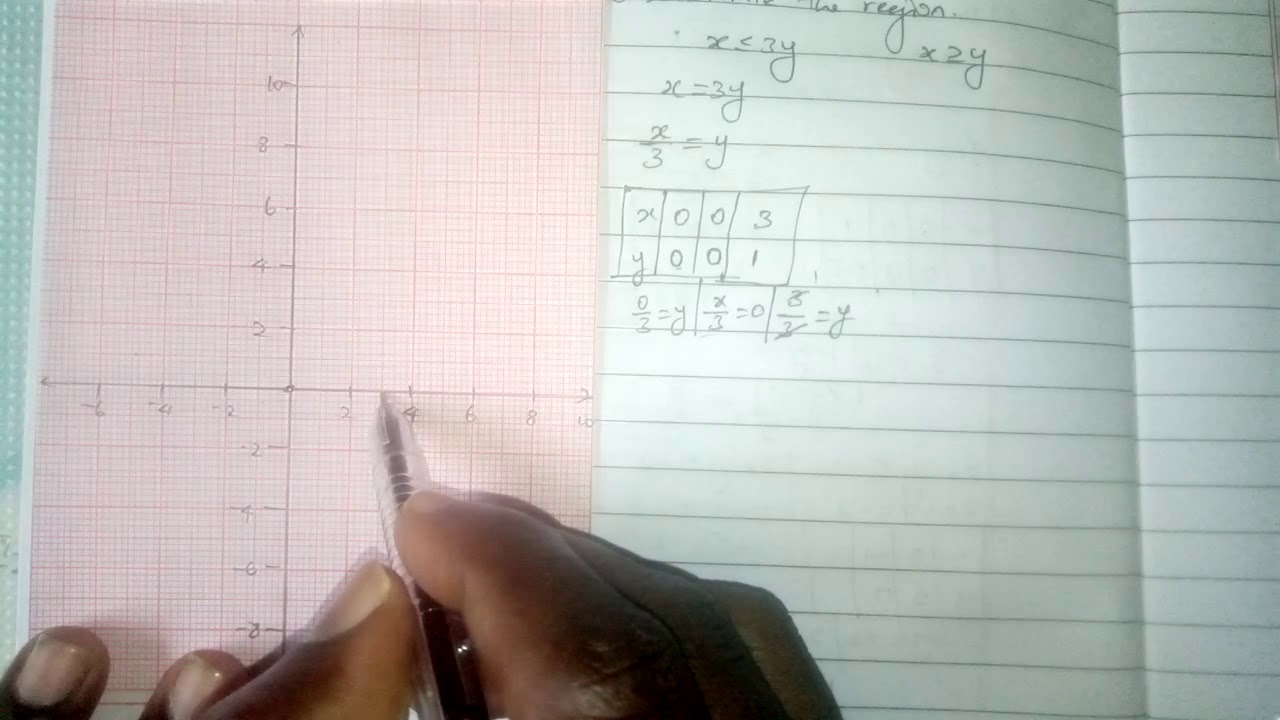 the region.
x ≤ 3y x ≥ y
x = 3y
x/3 = y
x 0 0 3
y 0 0 1
0/3 = y | x/3 = 0 | 3/3 = y
10
8
6
4
2
-6 -4 -2 2 4 6 8 10
-2
-4
-6
-8